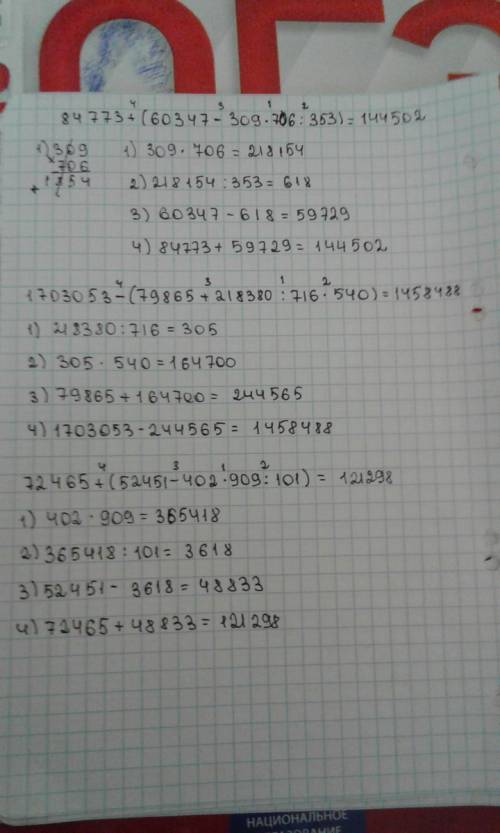 ОГЭ
84773+(60347-309·706:353)=144502
1) 309 1) 309·706=218154
×706
1854 2) 218154:353=618
+
3) 60347-618=59729
4) 84773+59729=144502
1703053-(79865+218380:716·540)=1458488
1) 218380:716=305
2) 305·540=164700
3) 79865+164700=244565
4) 1703053-244565=1458488
72465+(52451-402·909:101)=121298
1) 402·909=365418
2) 365418:101=3618
3) 52451-3618=48833
4) 72465+48833=121298
НАЦИОНАЛЬНОЕ
ОБРАЗОВАНИЕ